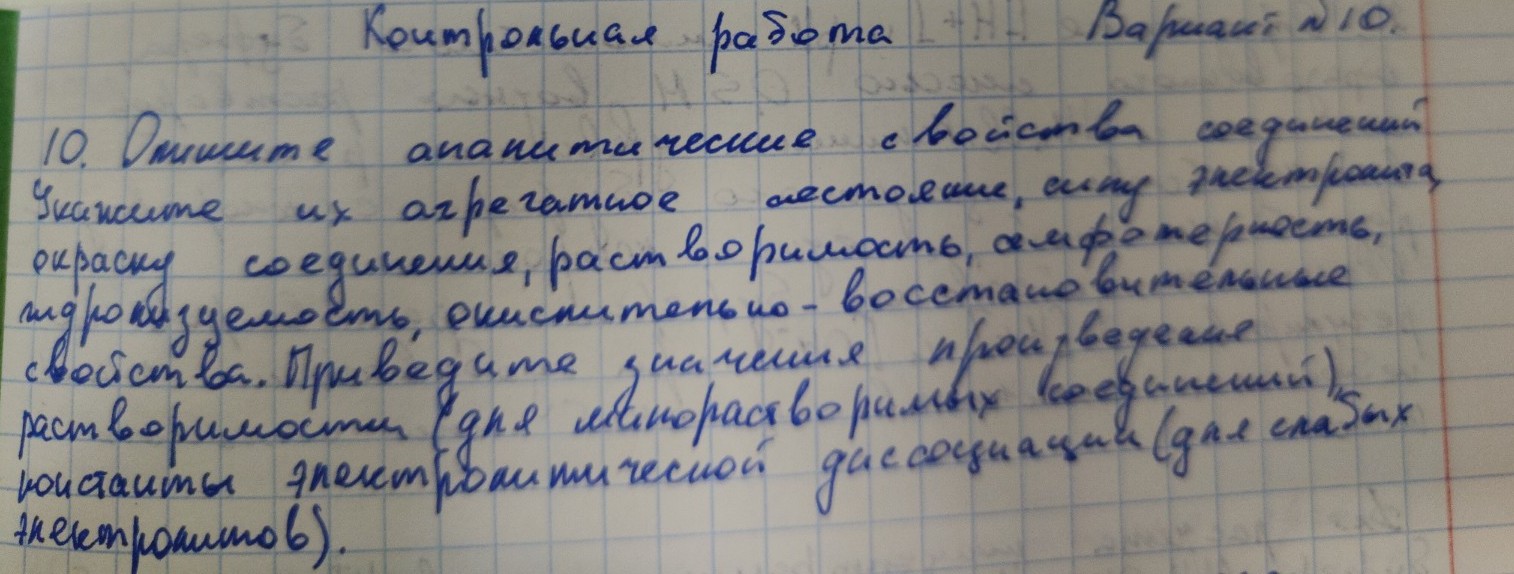 Контрольная работа Вариант №10.
10. Опишите аналитические свойства соединений
Укажите их агрегатное состояние, силу электролита,
окраску соединения, растворимость, амфотерность,
гидролизуемость, окислительно-восстановительные
свойства. Приведите значения произведения
растворимости (для малорастворимых соединений),
константы электролитической диссоциации (для слабых
электролитов).